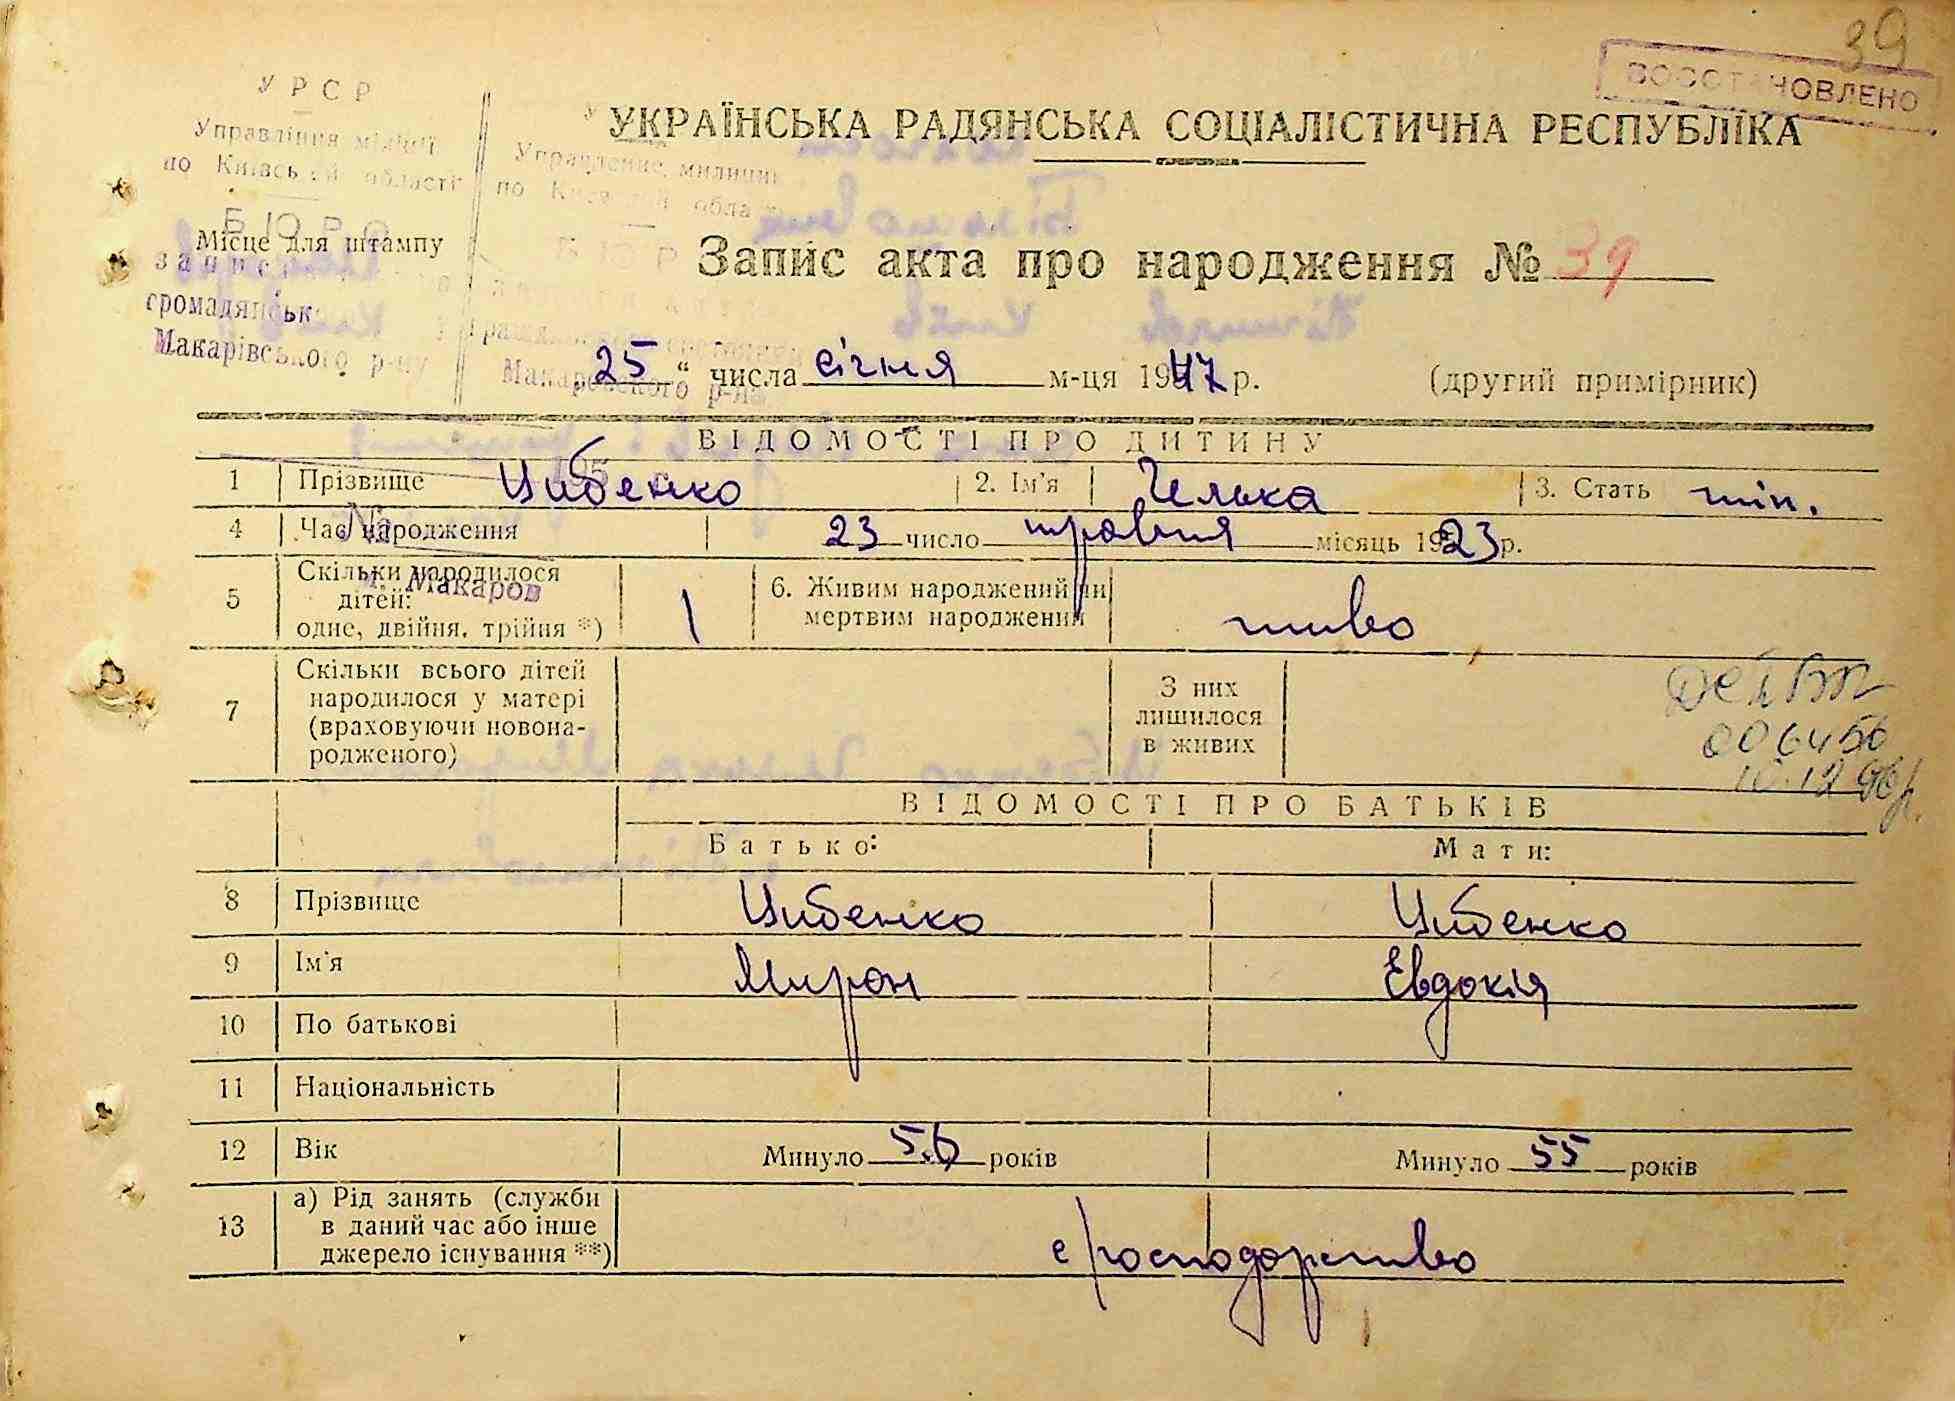 39
ВОССТАНОВЛЕНО
УРСР
Управління міліції
по Київській області
БЮРО
запис
громадянськ
Макарівського р-ну
Управление милиции
по Киевской обла
БЮР
Макаровского р-на
УКРАЇНСЬКА РАДЯНСЬКА СОЦІАЛІСТИЧНА РЕСПУБЛІКА
Місце для штампу
Запис акта про народження № 39
„25“ числа січня м-ця 1947 р. (другий примірник)
ВІДОМОСТІ ПРО ДИТИНУ
1 Прізвище Цибенко 2. Ім'я 3. Стать жін.
4 Час народження 23 число травня місяць 1923 р.
№
м. Макаров
5 Скільки народилося дітей: одне, двійня, трійня *) 1 6. Живим народжений чи мертвим народжений живо
7 Скільки всього дітей народилося у матері (враховуючи новонародженого) З них лишилося в живих
006456
10.12.96р.
ВІДОМОСТІ ПРО БАТЬКІВ
Батько: Мати:
8 Прізвище Цибенко Цибенко
9 Ім'я Мирон Евдокія
10 По батькові
11 Національність
12 Вік Минуло 56 років Минуло 55 років
13 а) Рід занять (служби в даний час або інше джерело існування **) с/господорство